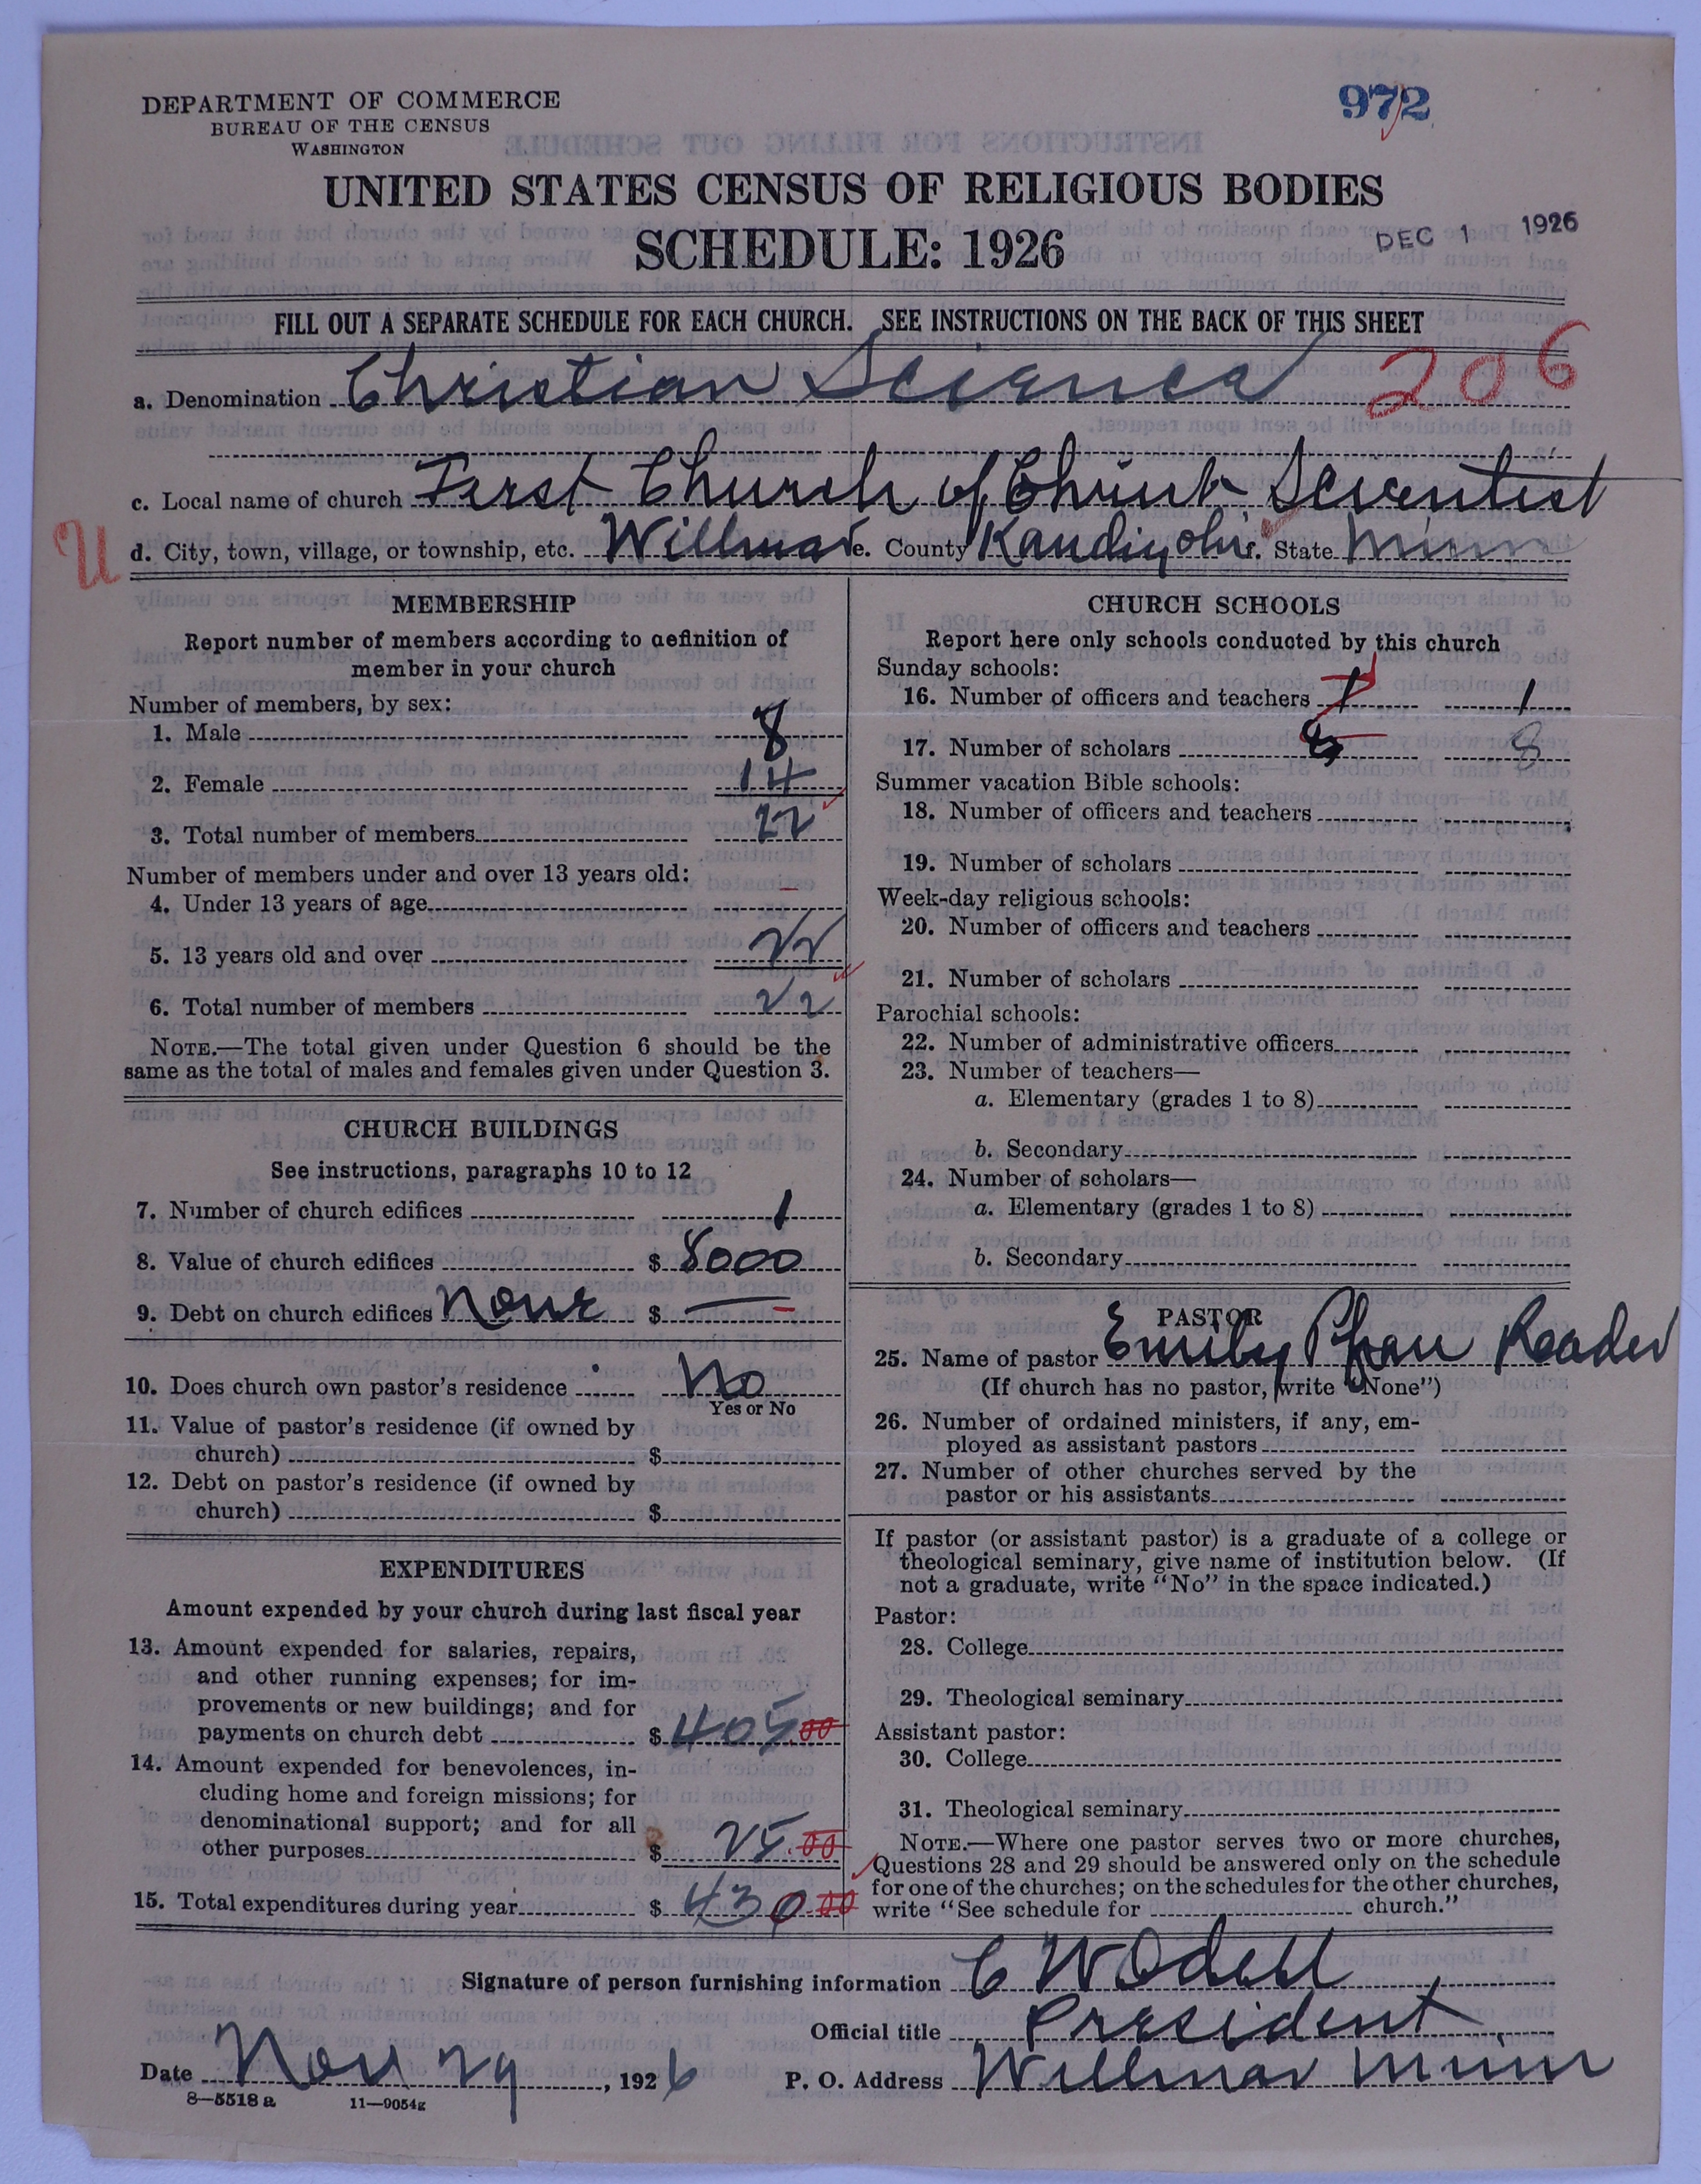 DEPARTMENT OF COMMERCE
BUREAU OF THE CENSUS
WASHINGTON
972
UNITED STATES CENSUS OF RELIGIOUS BODIES
SCHEDULE: 1926
DEC 1 1926
FILL OUT A SEPARATE SCHEDULE FOR EACH CHURCH. SEE INSTRUCTIONS ON THE BACK OF THIS SHEET
a. Denomination Christian Science 206
c. Local name of church First Church of Christ Scientist
U
d. City, town, village, or township, etc. Willmar e. County Kandiyohi f. State Minn
MEMBERSHIP
Report number of members according to definition of
member in your church
Number of members, by sex:
1. Male 8
2. Female 14
3. Total number of members 22
Number of members under and over 13 years old:
4. Under 13 years of age –
5. 13 years old and over 22
6. Total number of members 22
NOTE.—The total given under Question 6 should be the
same as the total of males and females given under Question 3.
CHURCH BUILDINGS
See instructions, paragraphs 10 to 12
7. Number of church edifices 1
8. Value of church edifices $ 8000
9. Debt on church edifices None $ —
10. Does church own pastor's residence No
Yes or No
11. Value of pastor's residence (if owned by
church) $
12. Debt on pastor's residence (if owned by
church) $
EXPENDITURES
Amount expended by your church during last fiscal year
13. Amount expended for salaries, repairs,
and other running expenses; for im-
provements or new buildings; and for
payments on church debt $ 405.00
14. Amount expended for benevolences, in-
cluding home and foreign missions; for
denominational support; and for all
other purposes $ 25.00
15. Total expenditures during year $ 430.00
CHURCH SCHOOLS
Report here only schools conducted by this church
Sunday schools:
16. Number of officers and teachers 1 1
17. Number of scholars 8 8
Summer vacation Bible schools:
18. Number of officers and teachers
19. Number of scholars
Week-day religious schools:
20. Number of officers and teachers
21. Number of scholars
Parochial schools:
22. Number of administrative officers
23. Number of teachers—
a. Elementary (grades 1 to 8)
b. Secondary
24. Number of scholars—
a. Elementary (grades 1 to 8)
b. Secondary
PASTOR
25. Name of pastor Emily Reader
(If church has no pastor, write "None")
26. Number of ordained ministers, if any, em-
ployed as assistant pastors
27. Number of other churches served by the
pastor or his assistants
If pastor (or assistant pastor) is a graduate of a college or
theological seminary, give name of institution below. (If
not a graduate, write "No" in the space indicated.)
Pastor:
28. College
29. Theological seminary
Assistant pastor:
30. College
31. Theological seminary
NOTE.—Where one pastor serves two or more churches,
Questions 28 and 29 should be answered only on the schedule
for one of the churches; on the schedules for the other churches,
write "See schedule for church."
Signature of person furnishing information C W Odell
Official title President
Date Nov 29, 1926 P. O. Address Willmar Minn
8—5518 a 11—9054g